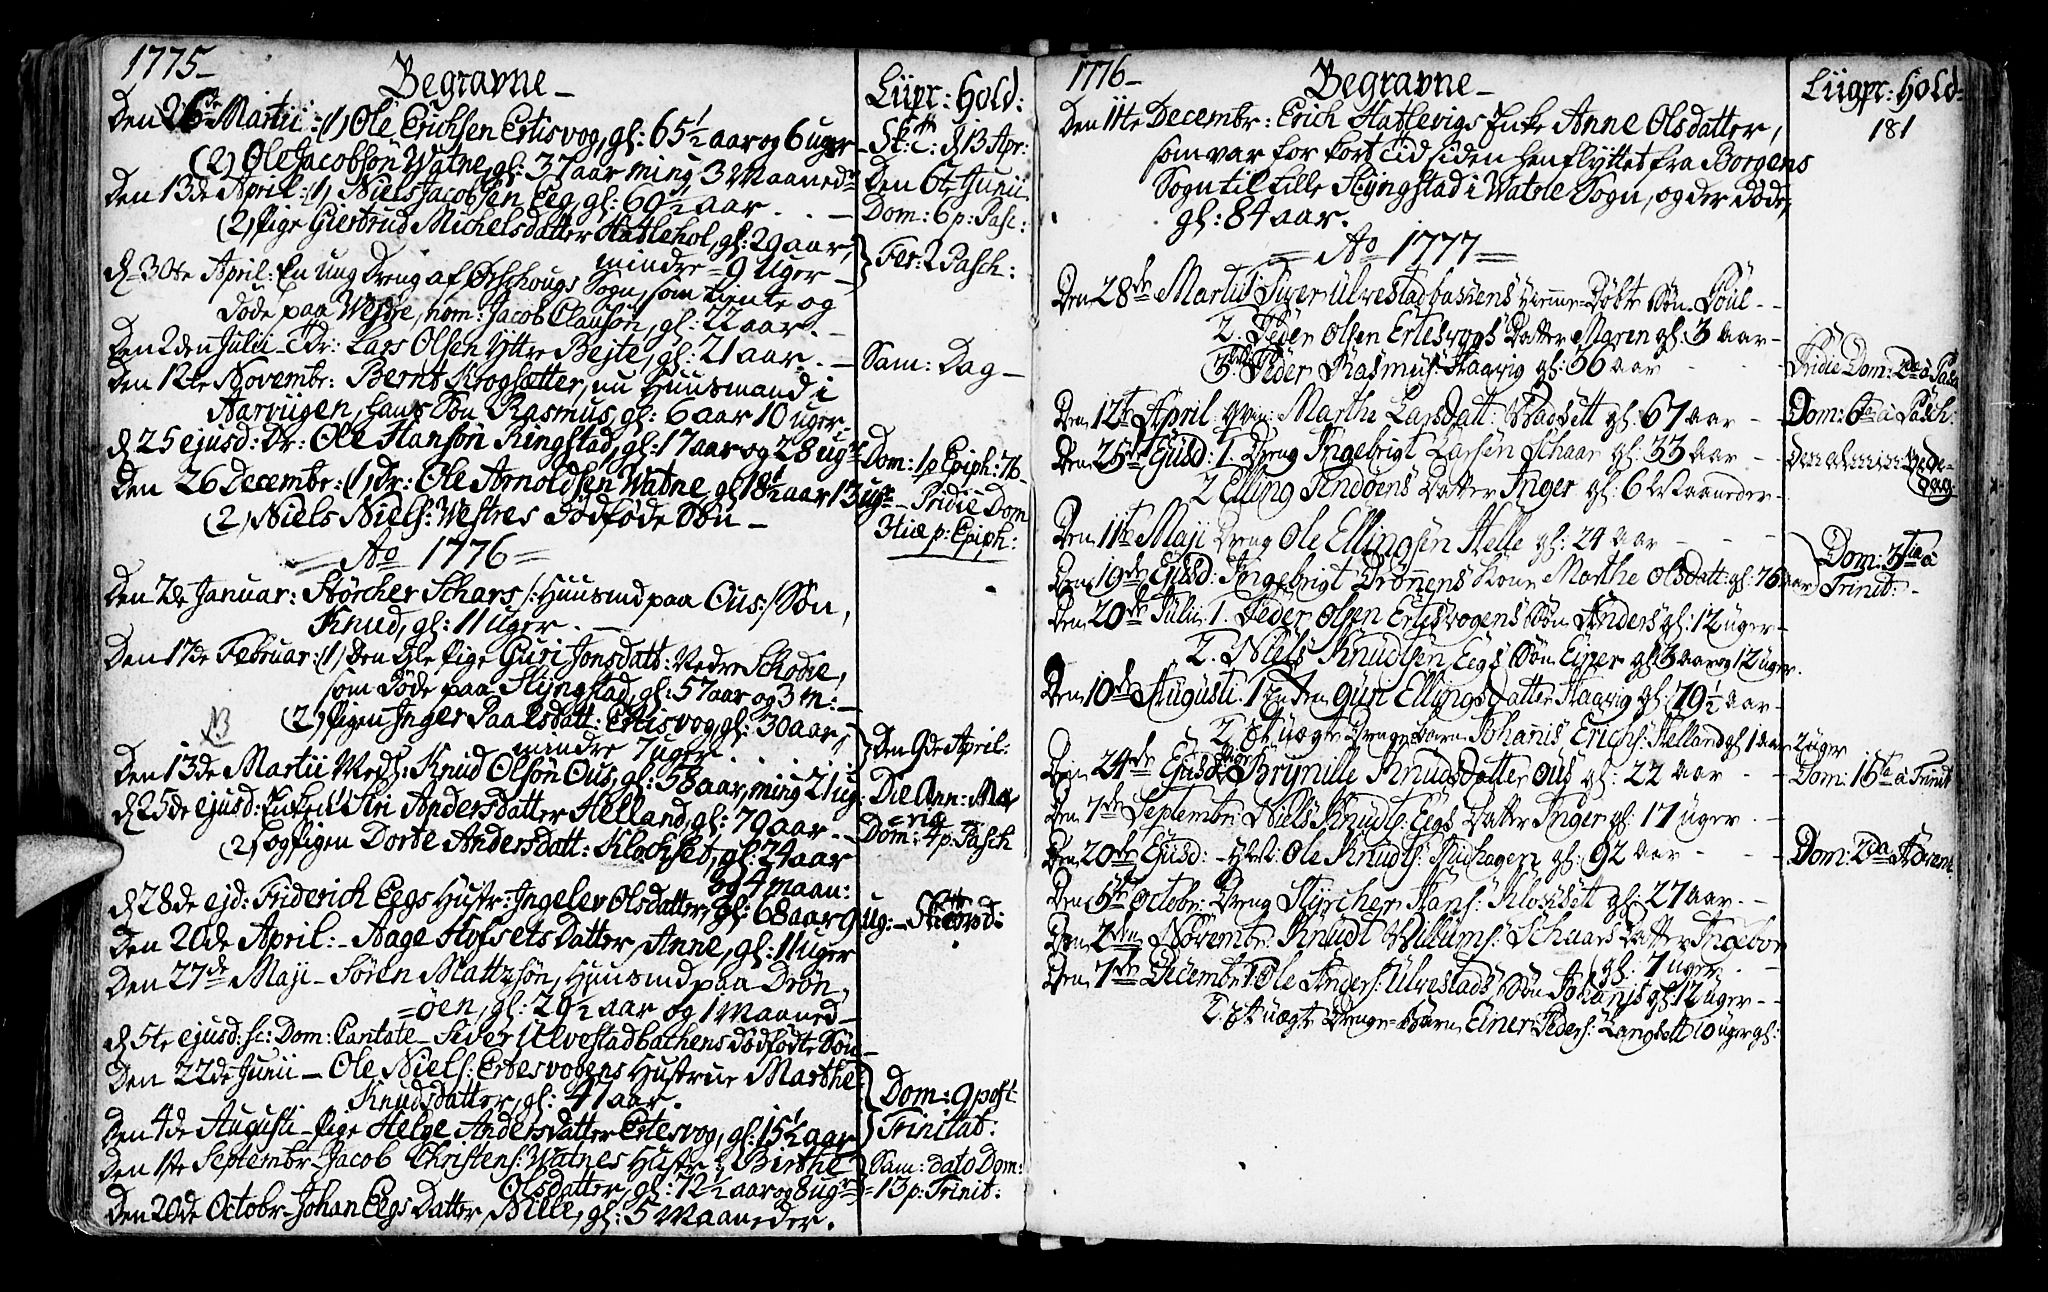 1775-
Begravne -
Liigpr: Hold:
Den 26de Martii: (1) Ole Erichsen Ertisvog, gl: 65½ aar og 6 uger
Sk: C: d 13 Apr:
(2) Ole Jacobsøn Watne, gl: 37 aar ming 3 Maaneder
Den 6te Junii
Den 13de April: (1) Niels Jacobsen Eeg, gl: 60½ aar. . . -
Dom: 6 p: Pasc:
(2) Pige Giertrud Michelsdatter Hatlehol, gl: 29 aar,
mindre = 9 Uger -
Fer: 2 Pasch:
d 30te April: En ung Dreng af Ørschougs Sogn, som tiente og
døde paa Westre, nom: Jacob Clausøn, gl: 22 aar. -
Den 2den Julii - Dr: Lars Olsen Yttre Bejte, gl: 21 aar. . -
Sam: Dag -
Den 12te Novembr: Bernt Krogsætter, nu Huusmand i
Aarviigen, hans Søn Rasmus, gl: 6 aar 10 uger -
d 25 ejusd: Dr: Ole Hansøn Ringstad, gl: 17 aar og 28 ugr
Dom: 1 p Epiph: 76 -
Den 26 Decembr: (1) Dr: Ole Arnoldsen Watne, gl 18½ aar 13 ugr
- Pridie Dom
(2) Niels Niels: Westres Dødføde Søn -
3tiæ p: Epiph:
= Ao 1776 =
Den 2de Januar: Størcher Schars /: Huusmd paa Ous :/ Søn,
Knud, gl: 11 uger. -
Den 17de Februar: (1) Den Gle Pige Guri Jonsdatt: Nedre Schodie,
som døde paa Slyngstad, gl: 57 aar og 3 m: -
(2) Pigen Inger Paalsdatt: Ertisvog, gl: 30 aar,
mindre 7 uger . . .
Den 9de April:
NB
Den 13de Martii Wedh: Knud Olsøn Ous, gl: 58 aar, ming 21 ug:
Die Ann: Ma=
=riæ -
d 25de ejusd: Enken Siri Andersdatter Helland, gl: 79 aar. -
(2) og Pigen Dorte Andersdatt: Klochset, gl: 24 aar
og 4 maan:
Dom: 4 p: Pasch
d 28de ejd: Friderich Eegs Hustr: Ingeler Olsdatter, gl: 68 aar 9 ug: -
Den 20de April: - Aage Hofsets Datter, Anne, gl: 11 uger
Den 27de Maji - Søren Mattzsøn, Huusmd paa Drøn,
=øen, gl: 29½ aar og 1 Maaned -
d 5te ejusd: sc: Dom: Cantate - Siver Ulvestadbachens dødfødte Søn -
Den 22de Junii - Ole Niels: Ertesvogens Hustrue Marthe
Knudsdatter, gl: 47 aar.
Dom: 9 post
Trinitat:
Den 4de Augusti - Pige Helge Andersdatter Ertesvog, gl: 15½ aar
Den 1ste Septembr. Jacob Christens: Watnes Hustr: Birthe
Olsdatter, gl: 72½ aar og 8 ugr
Sam: dato Dom:
= 13 p: Trinit:
Den 20de Octobr. Johan Eegs Datter, Bille, gl: 5 Maaneder.
1776 -
Begravne -
Liigpr: Hold:
181
Den 11te Decembr: Erich Hatlevigs Enke Anne Olsdatter,
som var for kort tid siden henflyttet fra Borgens
Sogn til lille Slyngstad i Watne Sogn, og der døde,
gl: 84 aar.
= Ao 1777 =
Den 28de Martii Siver Ulvestadbakens Hiemme-Døbte Søn Poul - -
2. Peder Olsen Ertesvogs Datter Maren gl: 3 Aar -
3. Peder Rasmus: Haavig gl: 36 aar - - -
Pridie Dom: 2da à Pasc
Den 12te April: Marthe Larsdatt: Wadsett gl: 67 Aar -
Dom: 6ta à Pasch:
Den 25de Ejusd: 1. Dreng Ingebrigt Larsen Schaar gl: 33 Aar - -
Den almin: Bede-
dag
2 Elling Sindøens Datter Inger gl: 6 Maaneder -
Den 11te Maji Dreng Ole Ellingsen Helle gl: 24 Aar - - -
Dom: 3tia à
Trinit:
Den 19de Ejusd: Ingebrigt Drønnens Kone Marthe Olsdatt: gl: 76 aar
Den 20de Julii 1. Peder Olsen Ertesvogens Søn Anders gl: 12 uger -
2. Niels Knudtsen Eegs Søn Einer gl: 3 aar og 12 uger.
Den 10de Augusti. 1 Enken Guri Ellingsdatter Haavig gl: 79½ Aar -
2. Et uægte Drenge Barn Johanis Erichs: Helland gl 1 aar 2 uger
Den 24de Ejusd: Brynille Knudsdatter Ous gl: 22 Aar - -
Dom: 15ta à Trinit
Den 7de Septembr: Niels Knudts: Eegs Datter Inger gl: 17 uger . -
Den 20de Ejusd: - Ole Knudts: gl: 92 Aar - - -
Dom: 2da Advent
Den 5te Octobr: Dreng Styrcher Hans: Klocksett gl: 27 Aar. - -
Den 2den Novembr: Knudt Willums: Schaars Datter Ingebor
gl: 7 uger. -
Den 7de Decembr: 1 Ole Anders: Ulvestads Søn Johanis gl: 12 uger - -
2. Et uægte Drenge-Barn Einer Peders: Langsett 10 uger gl: